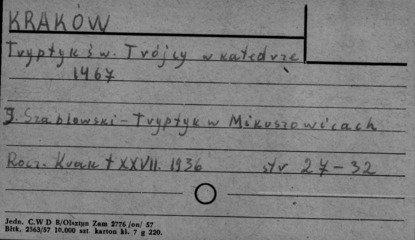 KRAKÓW
Tryptyk św. Trójcy w katedrze
1467
J. Szablowski - Tryptyk w Mikuszowicach
Rocz. Krak t XXVII. 1936 str 27-32
Jedn. C.W D B/Olsztyn Zam 2776 /on/ 57
Bltk. 2563/57 10,000 szt. karton kl. 7 g 220.